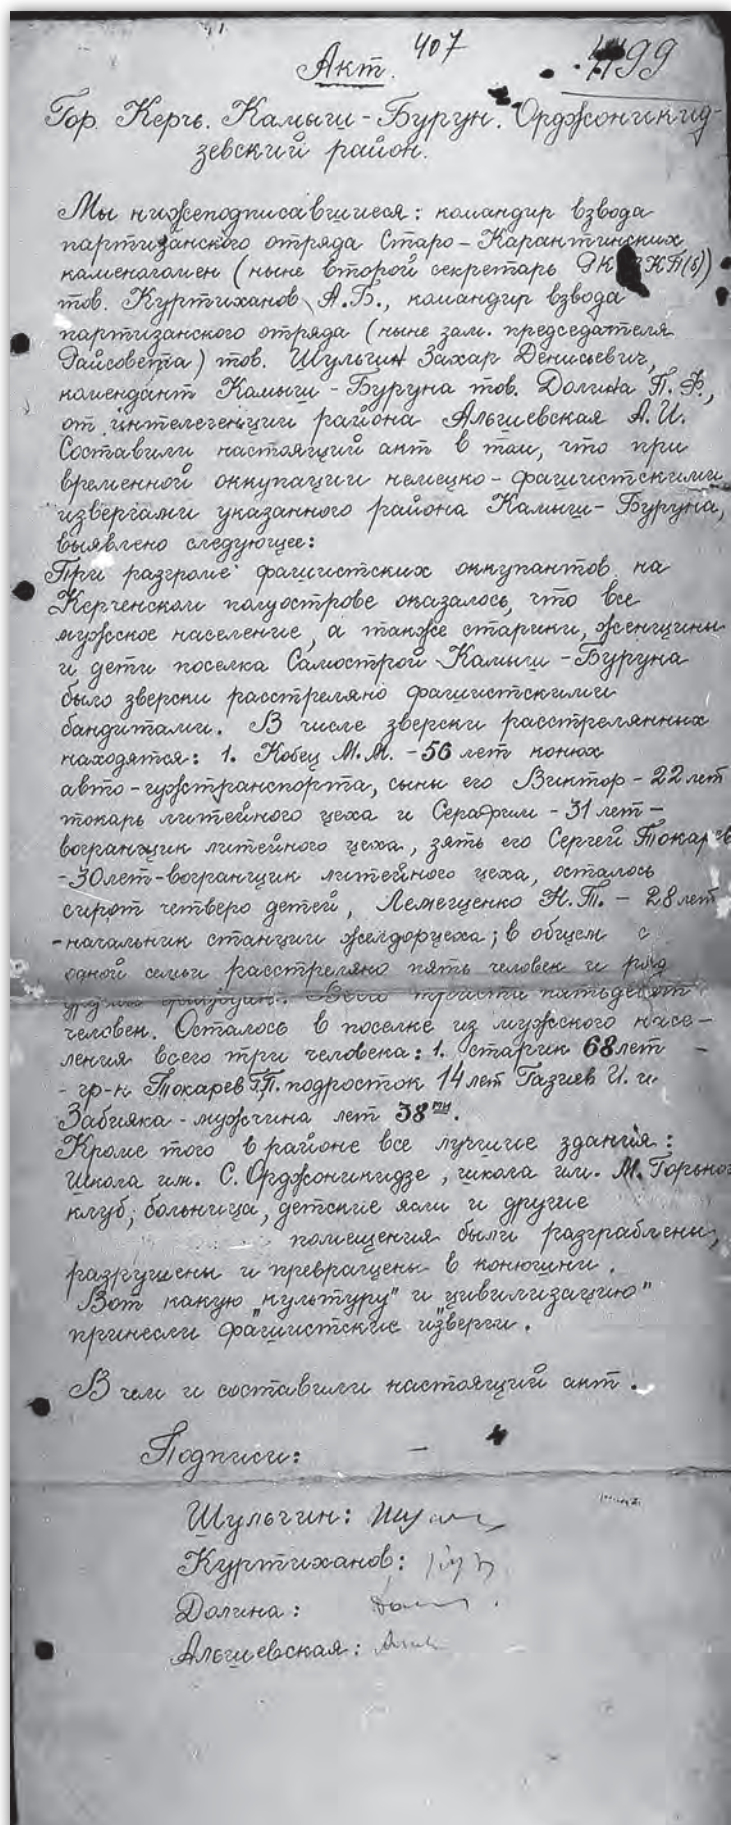 407
99
Акт.
Гор. Керчь. Камыш-Бурун. Орджоникид-
зевский район.
Мы нижеподписавшиеся: командир взвода
партизанского отряда Старо-Карантинских
каменоломен (ныне второй секретарь РК ВКП(б))
тов. Куртиханов А.Б., командир взвода
партизанского отряда (ныне зам. председателя
Райсовета) тов. Шульгин Захар Денисьевич,
комендант Камыш-Буруна тов. Долина П. Ф.,
от интелегенции района Альшевская А.И.
Составили настоящий акт в том, что при
временной оккупации немецко-фашистскими
извергами указанного района Камыш-Буруна,
выявлено следующее:
При разгроме фашистских оккупантов на
Керченском полуострове оказалось, что все
мужское население, а также старики, женщины
и дети поселка Самострой Камыш-Буруна
было зверски расстреляно фашистскими
бандитами. В числе зверски расстрелянных
находятся: 1. Кобец М.М. - 56 лет конюх
авто-гужтранспорта, сыны его Виктор - 22 лет
токарь литейного цеха и Серафим - 31 лет -
вогранщик литейного цеха, зять его Сергей Токарев
- 30 лет - вогранщик литейного цеха, осталось
сирот четверо детей, Лемещенко Н.Т. - 28 лет
- начальник станции желдорцеха; в общем с
одной семьи расстреляно пять человек и ряд
других Всего триста пятьдесят
человек. Осталось в поселке из мужского насе-
ления всего три человека: 1. старик 68 лет -
- гр-н Токарев подросток 14 лет Газиев И. и
Забияка - мужчина лет 38ми.
Кроме того в районе все лучшие здания:
Школа им. С. Орджоникидзе, школа им. М. Горького
клуб, больница, детские ясли и другие
помещения были разграблены,
разрушены и превращены в конюшни.
Вот какую „культуру" и „цивилизацию"
принесли фашистские изверги.
В чем и составили настоящий акт.
Подписи:
Шульгин:
Куртиханов:
Долина:
Альшевская: